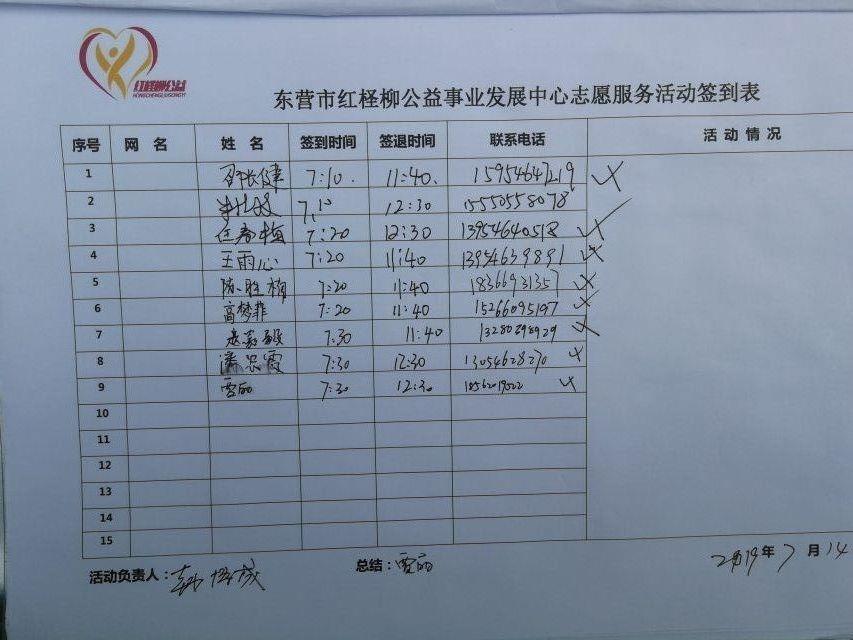 红柽柳公益
HONGCHENGLIUGONGYI
东营市红柽柳公益事业发展中心志愿服务活动签到表
序号 网 名 姓 名 签到时间 签退时间 联系电话 活 动 情 况
1 7:10. 11:40. 15954647219
2 7:10 12:30 15550558078
3 任春梅 7:20 12:30 13954640518
4 王雨心 7:20 11:40 13954639891
5 陈胜楠 7:20 11:40 18366931357
6 高梦菲 7:20 11:40 15266095197
7 7:30 11:40
8 潘忠霞 7:30 12:30 13054628270
9 雪丽 7:30 12:30
10
11
12
13
14
15
活动负责人: 总结:雪丽 2019年7月14